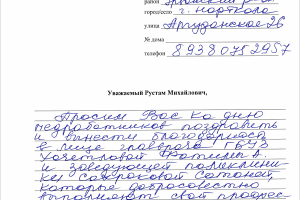 район Урванский р-он
город/село г. Нарткала
улица Аргуданское 26
№ дома
телефон 89380752957
Уважаемый Рустам Михайлович,
Просим Вас ко дню
медработников поздравить
и вынести благодарность
в лице главврача ГБУЗ
Хочетловой Фатимы В
и заведующей поликлини
ки Сакроковой Сатаней,
которые добросовестно
выполняют свой профес